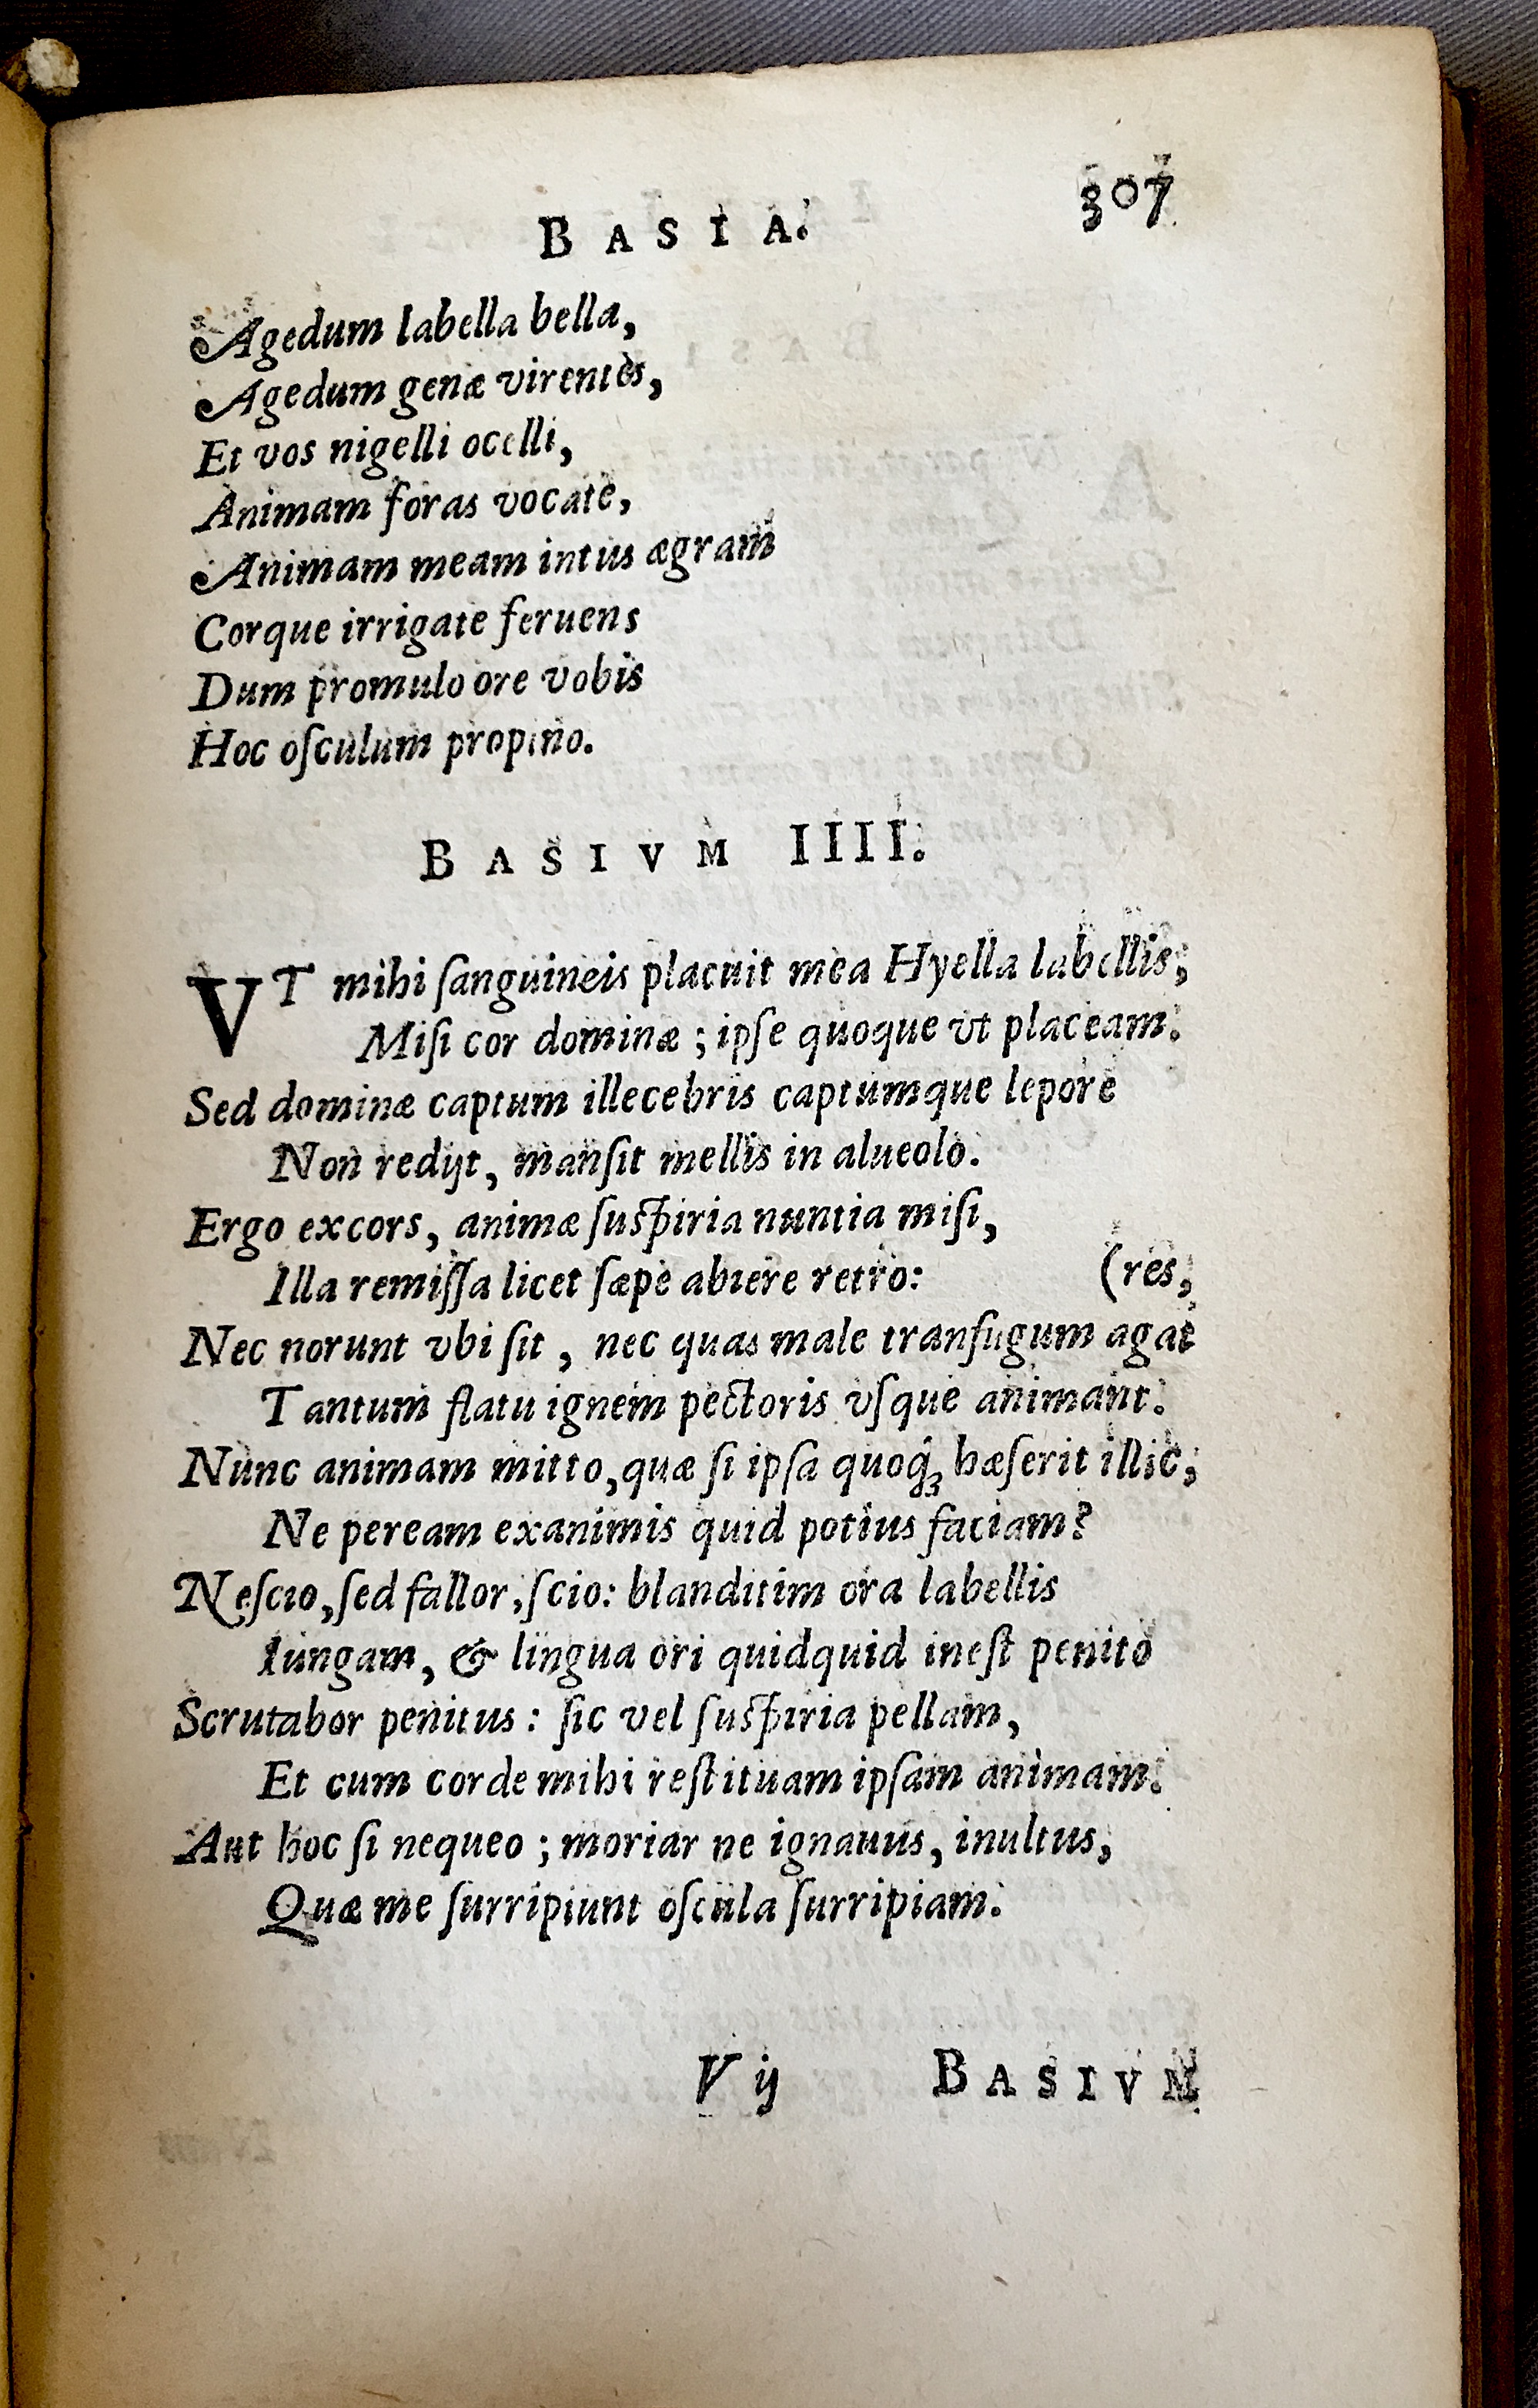 BASIA. 307
Agedum labella bella,
Agedum genæ virentes,
Et vos nigelli ocelli,
Animam foras vocate,
Animam meam intus ægram
Corque irrigate feruens
Dum promulo ore vobis
Hoc oſculum propino.
BASIVM IIII.
VT mihi ſanguineis placuit mea Hyella labellis;
Miſi cor dominæ; ipſe quoque vt placeam.
Sed dominæ captum illecebris captumque lepore
Non redijt, manſit mellis in alueolo.
Ergo excors, animæ ſuſpiria nuntia miſi,
Illa remiſſa licet ſæpe abiere retro: (res,
Nec norunt vbi ſit, nec quas male tranſfugum agat
Tantum flatu ignem pectoris vſque animant.
Nunc animam mitto, quæ ſi ipſa quoq́ꝫ hæſerit illic;
Ne peream exanimis quid potius faciam?
Neſcio, ſed fallor, ſcio: blanditim ora labellis
Iungam, & lingua ori quidquid ineſt penito
Scrutabor penitus: ſic vel ſuſpiria pellam,
Et cum corde mihi reſtituam ipſam animam.
Aut hoc ſi nequeo; moriar ne ignauus, inultus,
Quæ me ſurripiunt oſcula ſurripiam.
V ij BASIVM